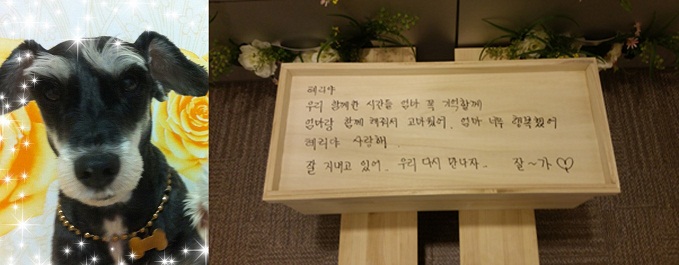 해리야
우리 함께한 시간들 엄마 꼭 기억할께
엄마랑 함께 해줘서 고마웠어. 엄마 너무 행복했어
해리야 사랑해.
잘 지내고 있어. 우리 다시 만나자. 잘~가♡